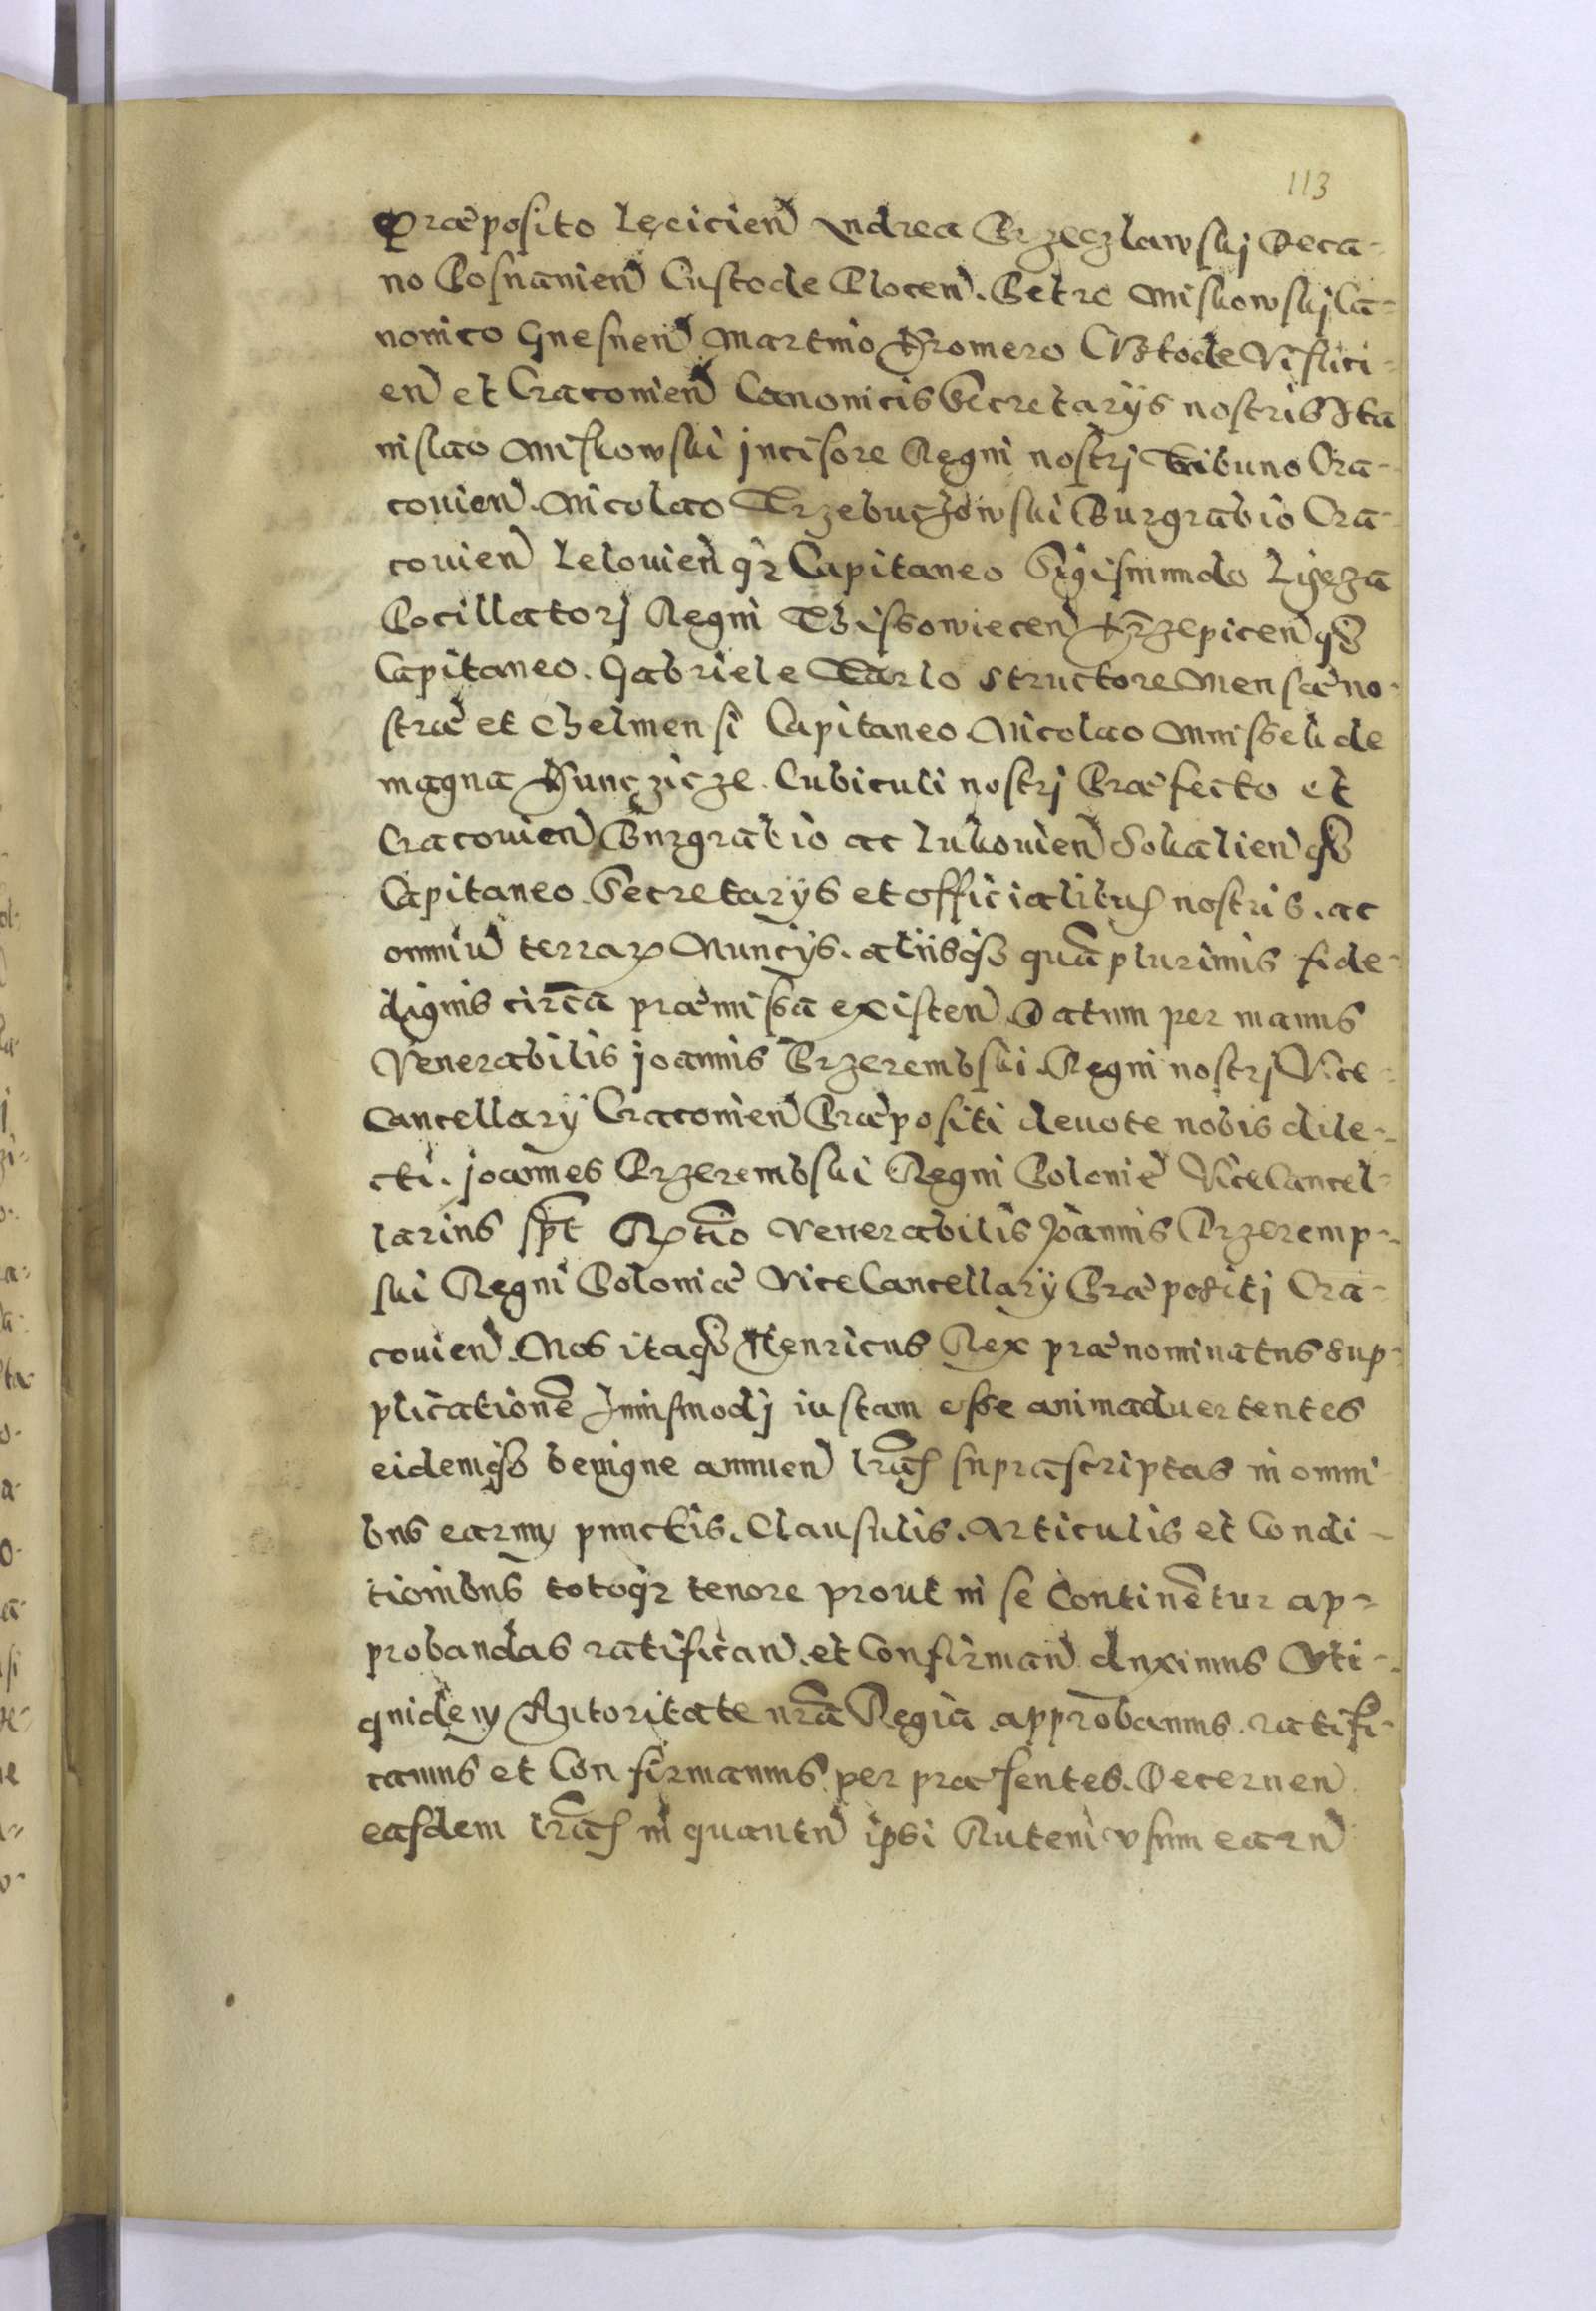 113
Præposito Lęcicień Andrea Brzeczlawskj Deca-
no Posnanień Custode Plocen. Petro Miskowskj Ca-
nonico Gnesnen Martino Kromero Custode Vislici-
en et Cracouień Canonicis Secretarÿs nostris Sta
nislao Miskowski jncisore Regni nostrj Tribuno Cra-
couień Nicolao Trzebuchowski Burgrabio Cra-
couień Lelouień qz Capitaneo Sigismundo Ligęza
Pocillatorj Regni Thissowiecen Krzepicen qz
Capitaneo. Gabriele Tarlo structore Mensæ no-
stræ et Chelmensi Capitaneo Nicolao Mnissek de
magna Kunczicze. Cubiculi nostrj Præfecto et
Cracouień Burgrabio ac Lukouień Sokalień qz
Capitaneo. Secretarÿs et officialibus nostris. ac
omniu terrar Nuncÿs. aliisqz quã plurimis fide-
dignis circa præmissa existen Datum per manus
Venerabilis joannis Przerembski. Regni nostrj Vice-
Cancellarÿ Cracouień Præpositi deuote nobis dile-
cti. joannes Przerembski Regni Polonie ViceCancel-
larius spt Rtio Venerabilis Joannis Przeremp-
ski Regni Poloniæ ViceCancellarÿ Præpositj Cra-
couień. Nos itaqz Henricus Rex prænominatus sup-
plicationẽ huiusmodj iustam esse animaduertentes
eidemqz benigne annuen lras suprascriptas in omni
bus earum punctis. Clausulis. Articulis et Condi-
tionibus totoqz tenore prout in se Continẽtur ap-
probandas ratifican. et Confirman duximus Vti-
quidem Autoritate nrã Regia approbamus. ratifi-
camus et Confirmamus per præsentes. Decernen
easdem lras in quantu ipsi Ruteni vsum earu